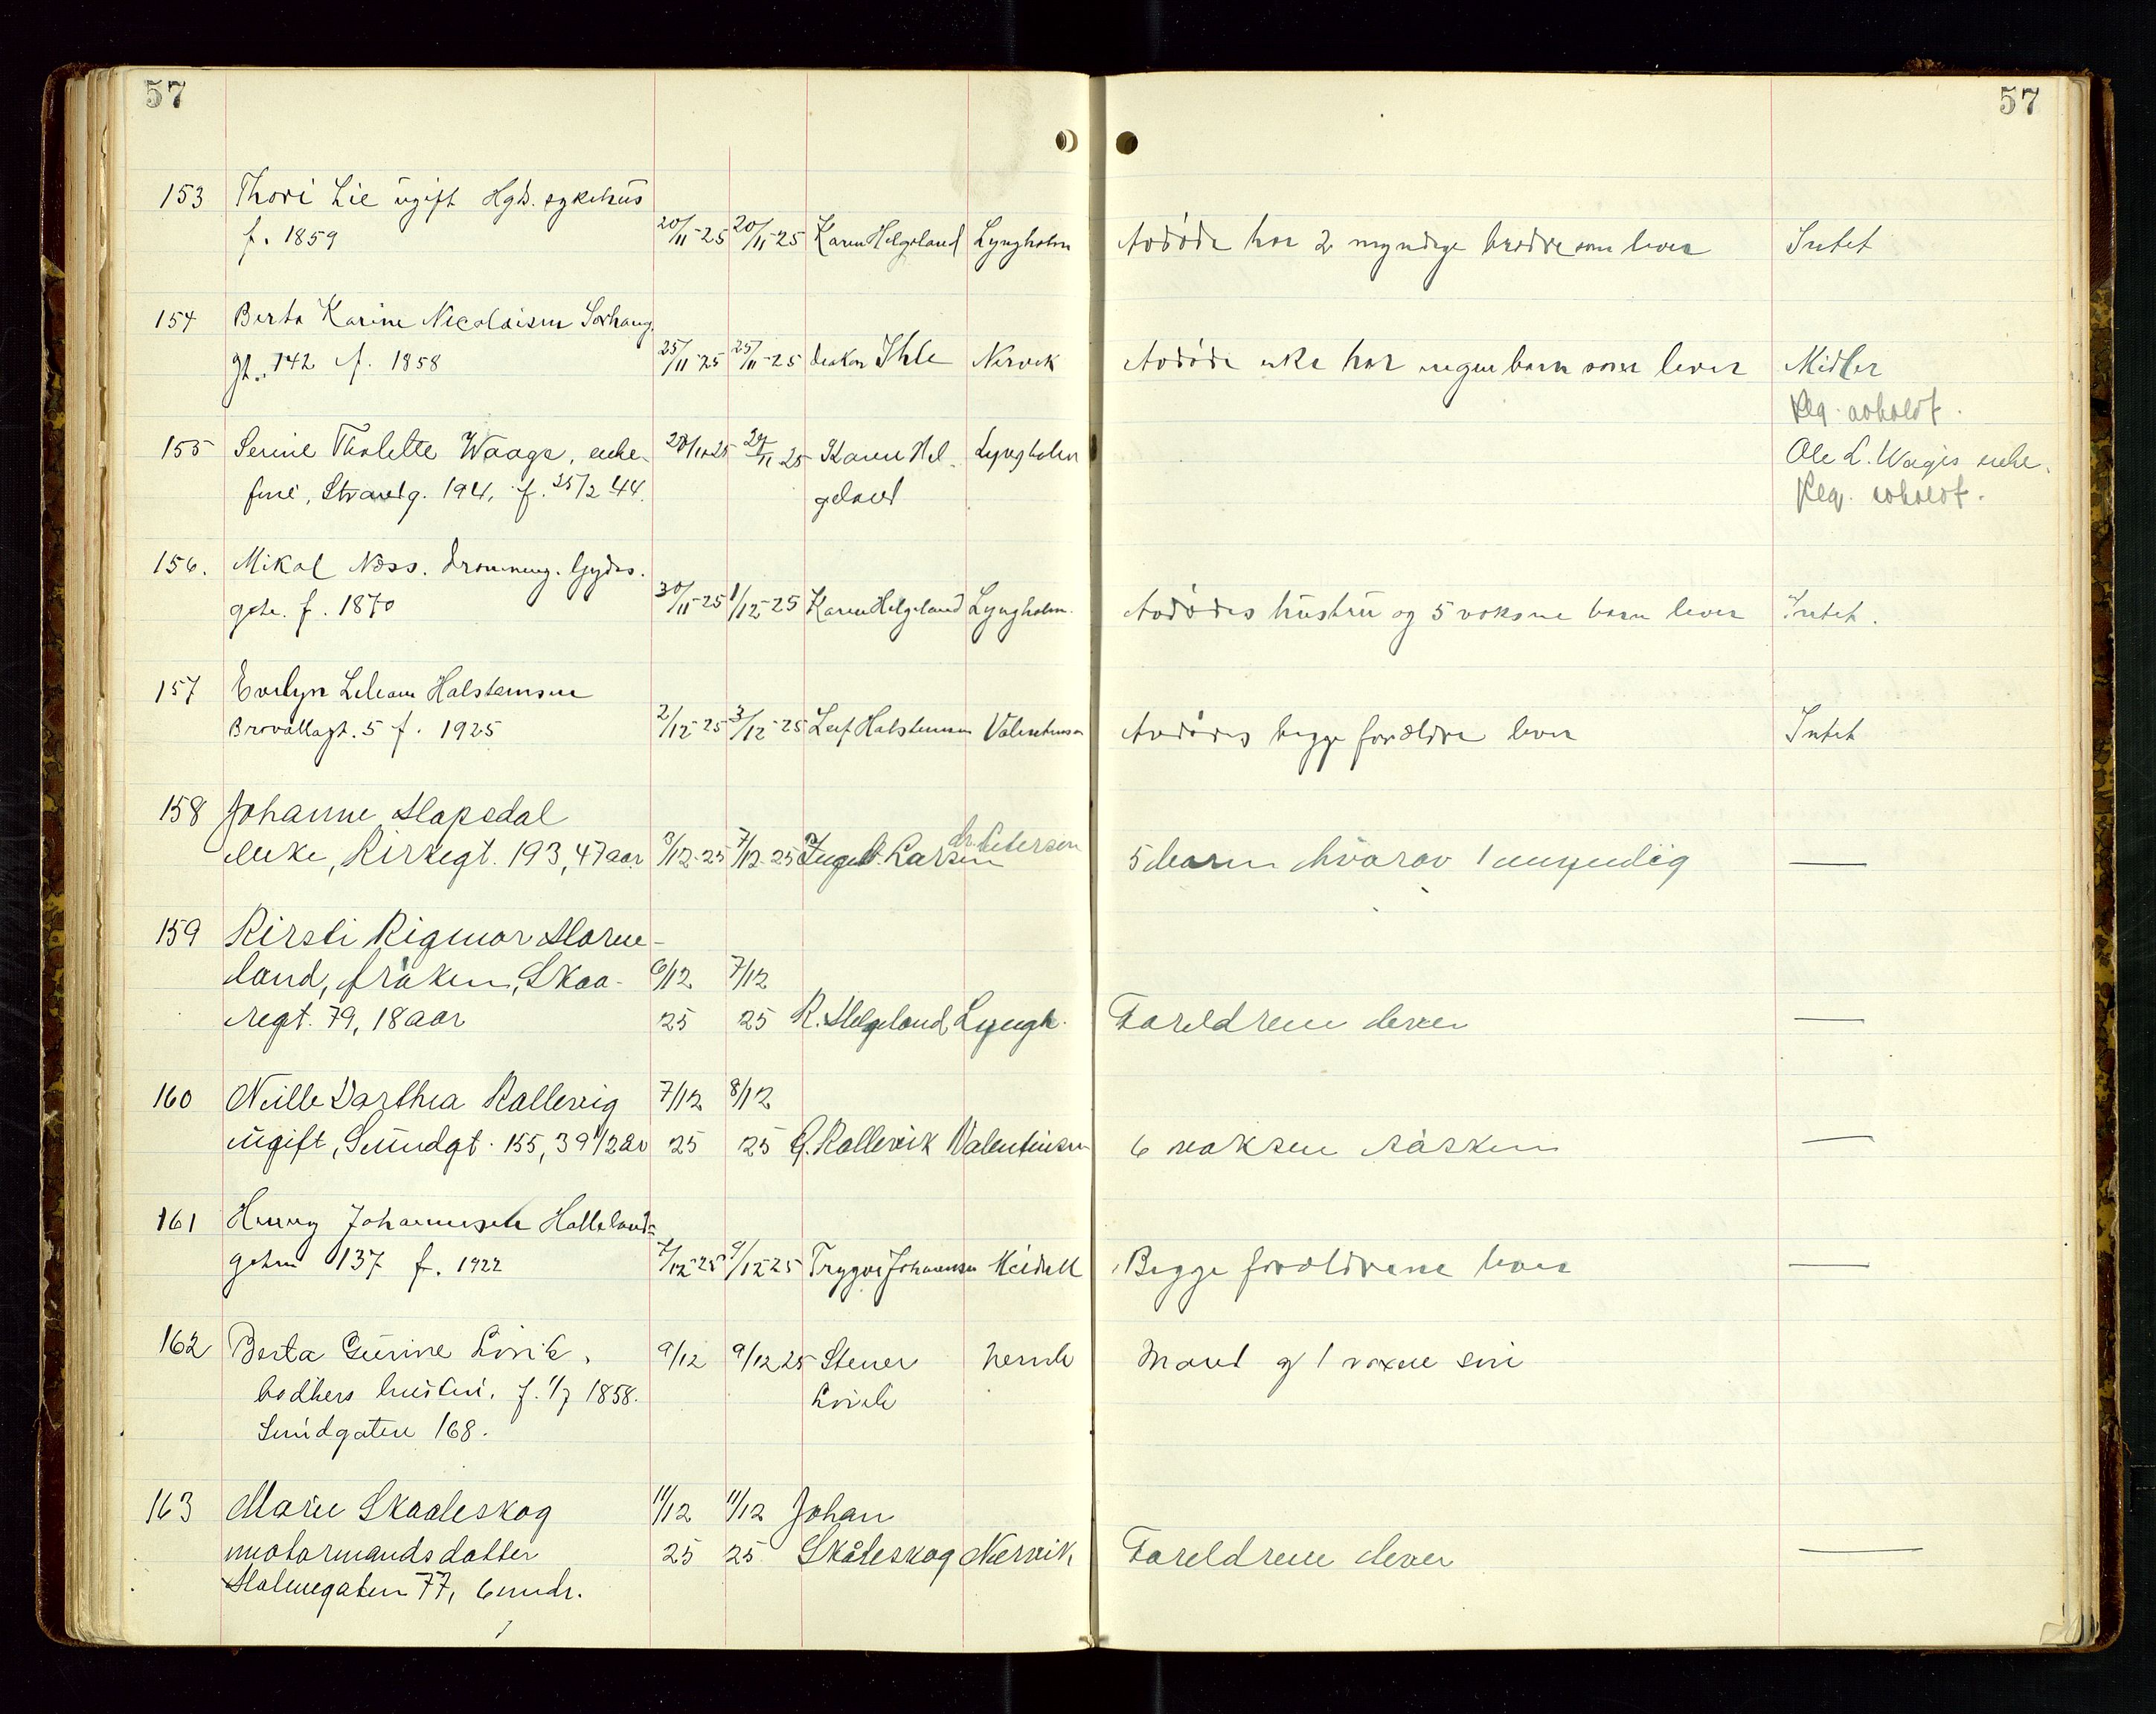 57
57
153 Thori Lie ugift Hgds. sykehus
f. 1859 20/11-25 20/11-25 Karen Helgeland Lyngholm Avdöde har 2 myndige brødre som lever Intet
154 Berta Karine Nicolaisen Sørhaug
gt. 142 f. 1858 25/11-25 25/11-25 diakon Ihle Nervik Avdöde enke har ingen barn som lever Midler
Reg. avholdt.
155 Serine Tholette Waage, enke- 28/11 25 29/11 25 Karen Hel- Lyngholm Ole L. Wages enke.
frue, Strandg. 194, f. 25/2 44. geland Reg. avholdt.
156. Mikal Næss. Dronning. Gydas.
gate. f. 1870 30/11-25 1/12-25 Karen Helgeland Lyngholm. Avdödes hustru og 5 voksne barn lever Intet.
157 Evelyn Leleam Halstensen
Brovollagt. 5 f. 1925 2/12-25 3/12-25 Leif Halstensen Valentinsen Avdødes begge forældre lever Intet
158 Johanne Hapsdal
enke, Kirkegt. 193, 47 aar 3/12-25 7/12-25 Ingeb. Larsen Petersen 5 barn hvorav 1 umyndig —
159 Kirsti Rigmor Horne-
land, frøken, Skaa- 6/12 7/12
regt. 79, 18 aar 25 25 K. Helgeland Lyngh. Foreldrene lever —
160 Nille Dorthea Kallevig 7/12 8/12
ugift, Sundgt. 155, 39 1/2 aar 25 25 G. Kallevik Valentinsen 6 voksen søsken —
161 Henny Johannesen Hallelands-
gaten 137 f. 1922 7/12-25 9/12 25 Trygve Johannesen Meidell Begge forældrene lever —
162 Berta Gurine Lovik, 9/12 9/12 25 Stener Nervik Mand og 1 voxen søn
bødkers hustru. f. 1/7 1858. Lovik
Sundgaten 168.
163 Marie Skaaleskog 11/12 11/12 Johan
motormands datter 25 25 Skåleskog Nervik Foreldrene lever —
Holmegaten 77, 6 mndr.